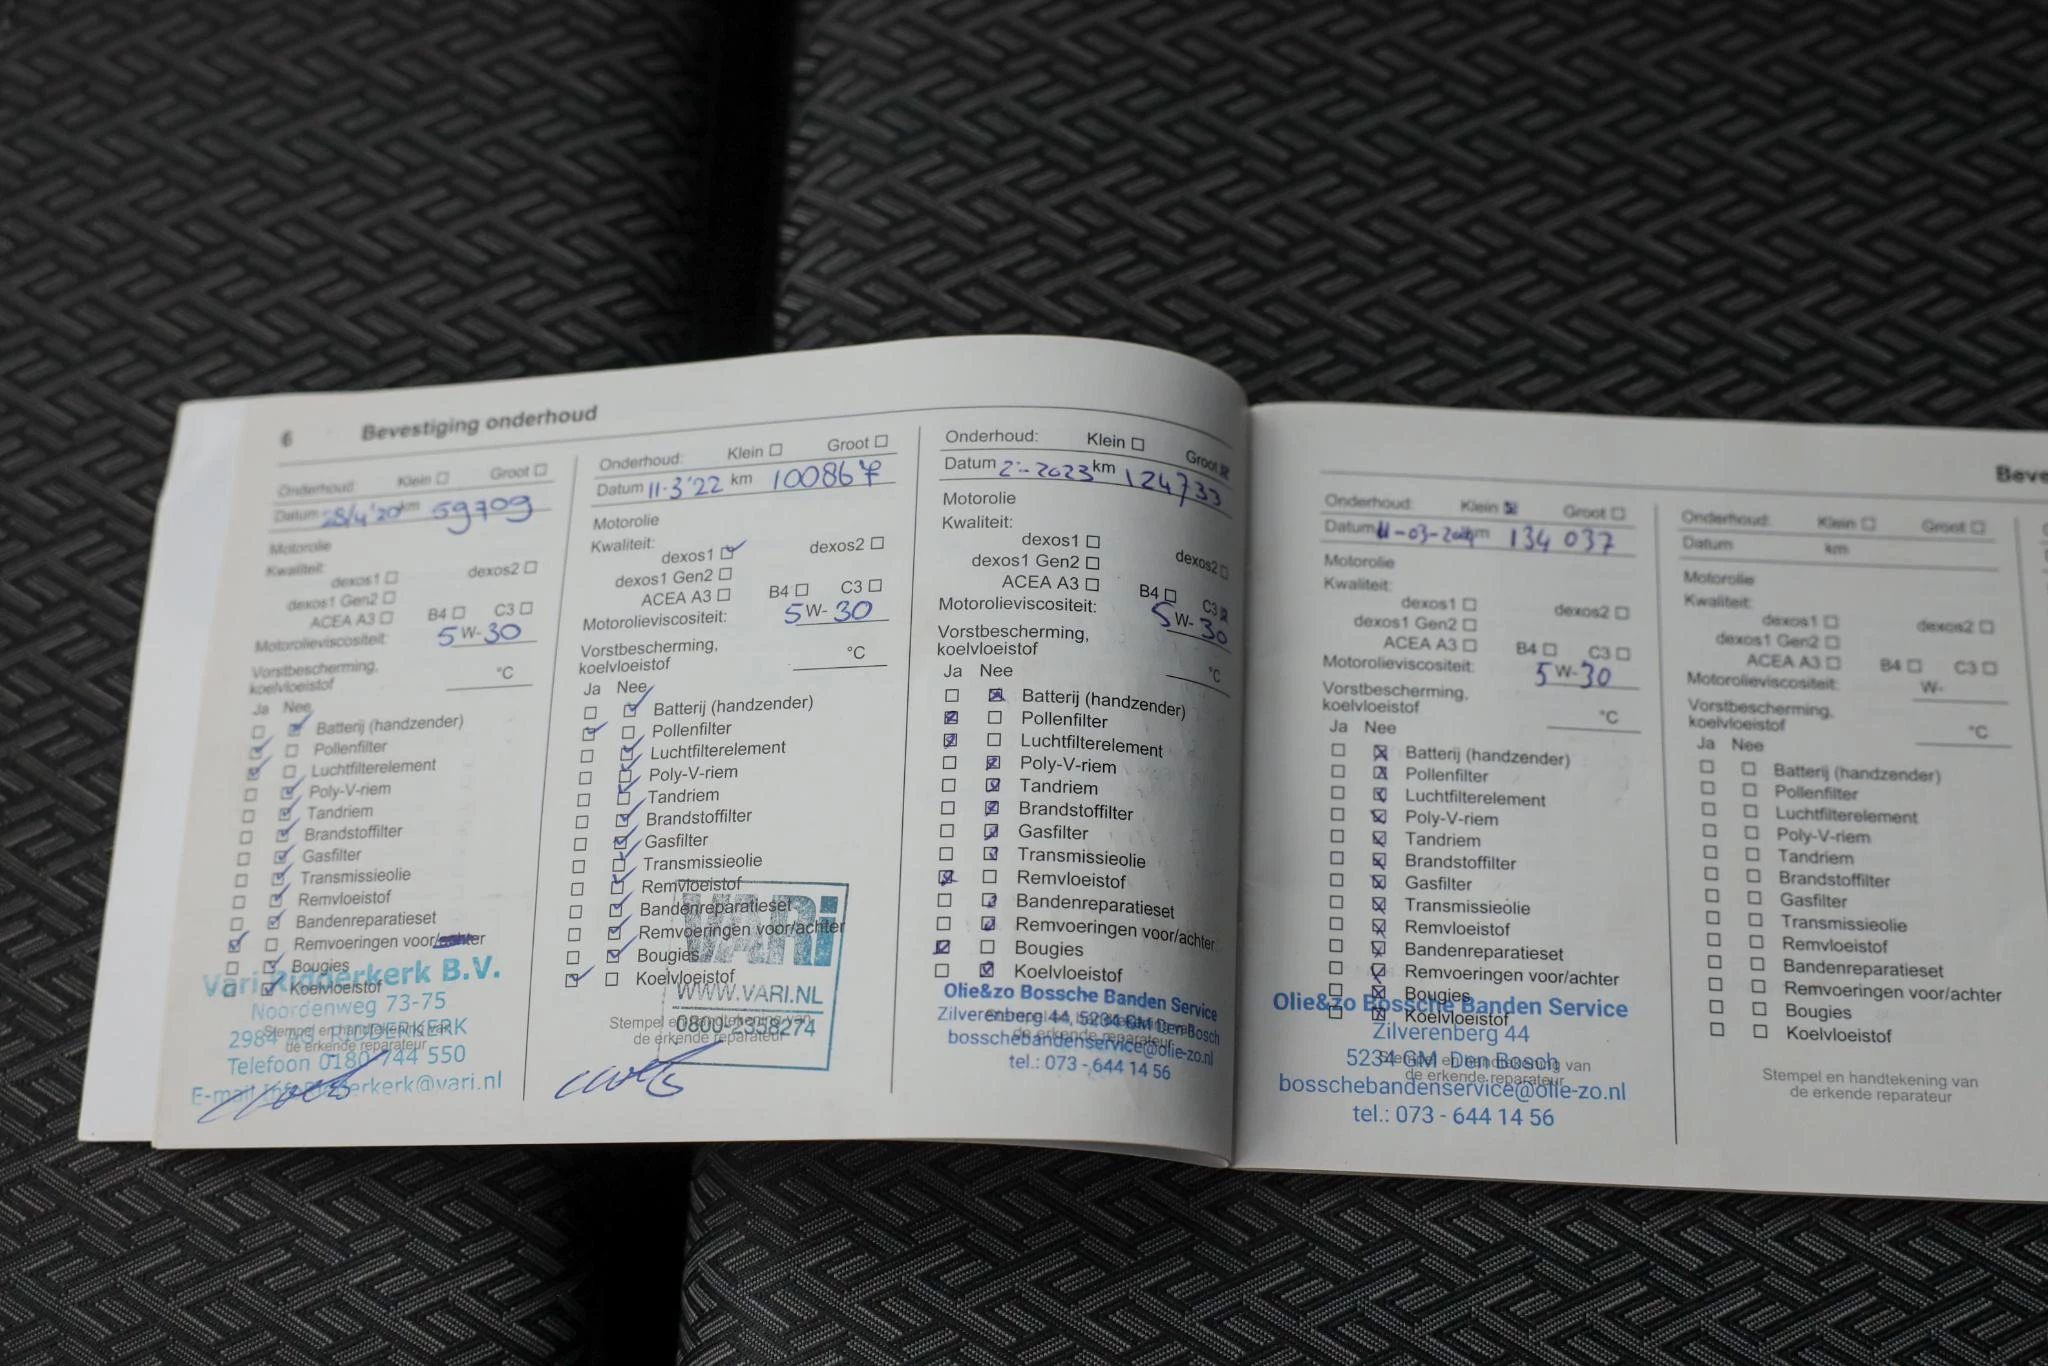 6 Bevestiging onderhoud
Onderhoud: Klein ☐ Groot ☐
Datum 28/4'20 km 59709
Motorolie
Kwaliteit:
dexos1 ☐ dexos2 ☐
dexos1 Gen2 ☐
ACEA A3 ☐ B4 ☐ C3 ☐
Motorolieviscositeit: 5 W- 30
Vorstbescherming,
koelvloeistof °C
Ja Nee
Batterij (handzender)
Pollenfilter
Luchtfilterelement
Poly-V-riem
Tandriem
Brandstoffilter
Gasfilter
Transmissieolie
Remvloeistof
Bandenreparatieset
Remvoeringen voor/achter
Bougies
Koelvloeistof
Vari Ridderkerk B.V.
Noordenweg 73-75
2984 RIDDERKERK
Telefoon 0180 744 550
Stempel en handtekening van
de erkende reparateur
Onderhoud: Klein ☐ Groot ☐
Datum 11-3'22 km 100867
Motorolie
Kwaliteit:
dexos1 ☑ dexos2 ☐
dexos1 Gen2 ☐
ACEA A3 ☐ B4 ☐ C3 ☐
Motorolieviscositeit: 5 W- 30
Vorstbescherming,
koelvloeistof °C
Ja Nee
Batterij (handzender)
Pollenfilter
Luchtfilterelement
Poly-V-riem
Tandriem
Brandstoffilter
Gasfilter
Transmissieolie
Remvloeistof
Bandenreparatieset
Remvoeringen voor/achter
Bougies
Koelvloeistof
VARi
WWW.VARI.NL
0800-2358274
Stempel en handtekening van
de erkende reparateur
Onderhoud: Klein ☐ Groot ☒
Datum 2-2023 km 124733
Motorolie
Kwaliteit:
dexos1 ☐ dexos2 ☐
dexos1 Gen2 ☐
ACEA A3 ☐ B4 ☐ C3 ☒
Motorolieviscositeit: 5 W- 30
Vorstbescherming,
koelvloeistof °C
Ja Nee
Batterij (handzender)
Pollenfilter
Luchtfilterelement
Poly-V-riem
Tandriem
Brandstoffilter
Gasfilter
Transmissieolie
Remvloeistof
Bandenreparatieset
Remvoeringen voor/achter
Bougies
Koelvloeistof
Olie&zo Bossche Banden Service
Zilverenberg 44, 5234 GM Den Bosch
bosschebandenservice@olie-zo.nl
tel.: 073 - 644 14 56
Onderhoud: Klein ☒ Groot ☐
Datum 11-03-2024 km 134 037
Motorolie
Kwaliteit:
dexos1 ☐ dexos2 ☐
dexos1 Gen2 ☐
ACEA A3 ☐ B4 ☐ C3 ☐
Motorolieviscositeit: 5 W- 30
Vorstbescherming,
koelvloeistof °C
Ja Nee
Batterij (handzender)
Pollenfilter
Luchtfilterelement
Poly-V-riem
Tandriem
Brandstoffilter
Gasfilter
Transmissieolie
Remvloeistof
Bandenreparatieset
Remvoeringen voor/achter
Bougies
Koelvloeistof
Olie&zo Bossche Banden Service
Zilverenberg 44
5234 GM Den Bosch
bosschebandenservice@olie-zo.nl
tel.: 073 - 644 14 56
Stempel en handtekening van
de erkende reparateur
Onderhoud: Klein ☐ Groot ☐
Datum km
Motorolie
Kwaliteit:
dexos1 ☐ dexos2 ☐
dexos1 Gen2 ☐
ACEA A3 ☐ B4 ☐ C3 ☐
Motorolieviscositeit: W-
Vorstbescherming,
koelvloeistof °C
Ja Nee
Batterij (handzender)
Pollenfilter
Luchtfilterelement
Poly-V-riem
Tandriem
Brandstoffilter
Gasfilter
Transmissieolie
Remvloeistof
Bandenreparatieset
Remvoeringen voor/achter
Bougies
Koelvloeistof
Stempel en handtekening van
de erkende reparateur